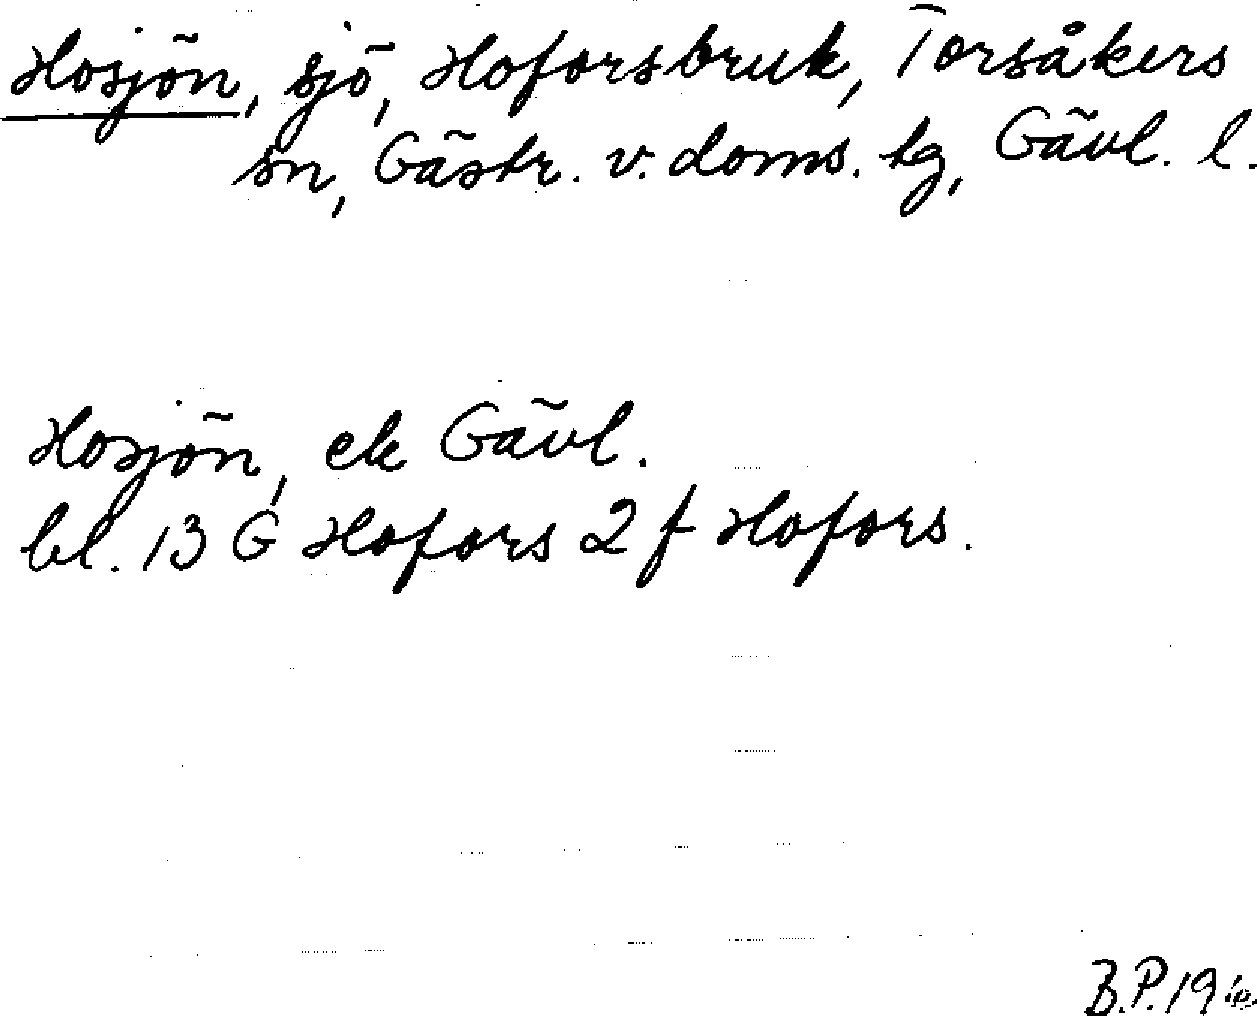 Hosjön, sjö, Hoforsbruk, Torsåkers
sn, Gästr. v. doms. tg, Gävl. l.
Hosjön, ek Gävl.
bl. 13 G Hofors 2 f Hofors.
B.P. 19